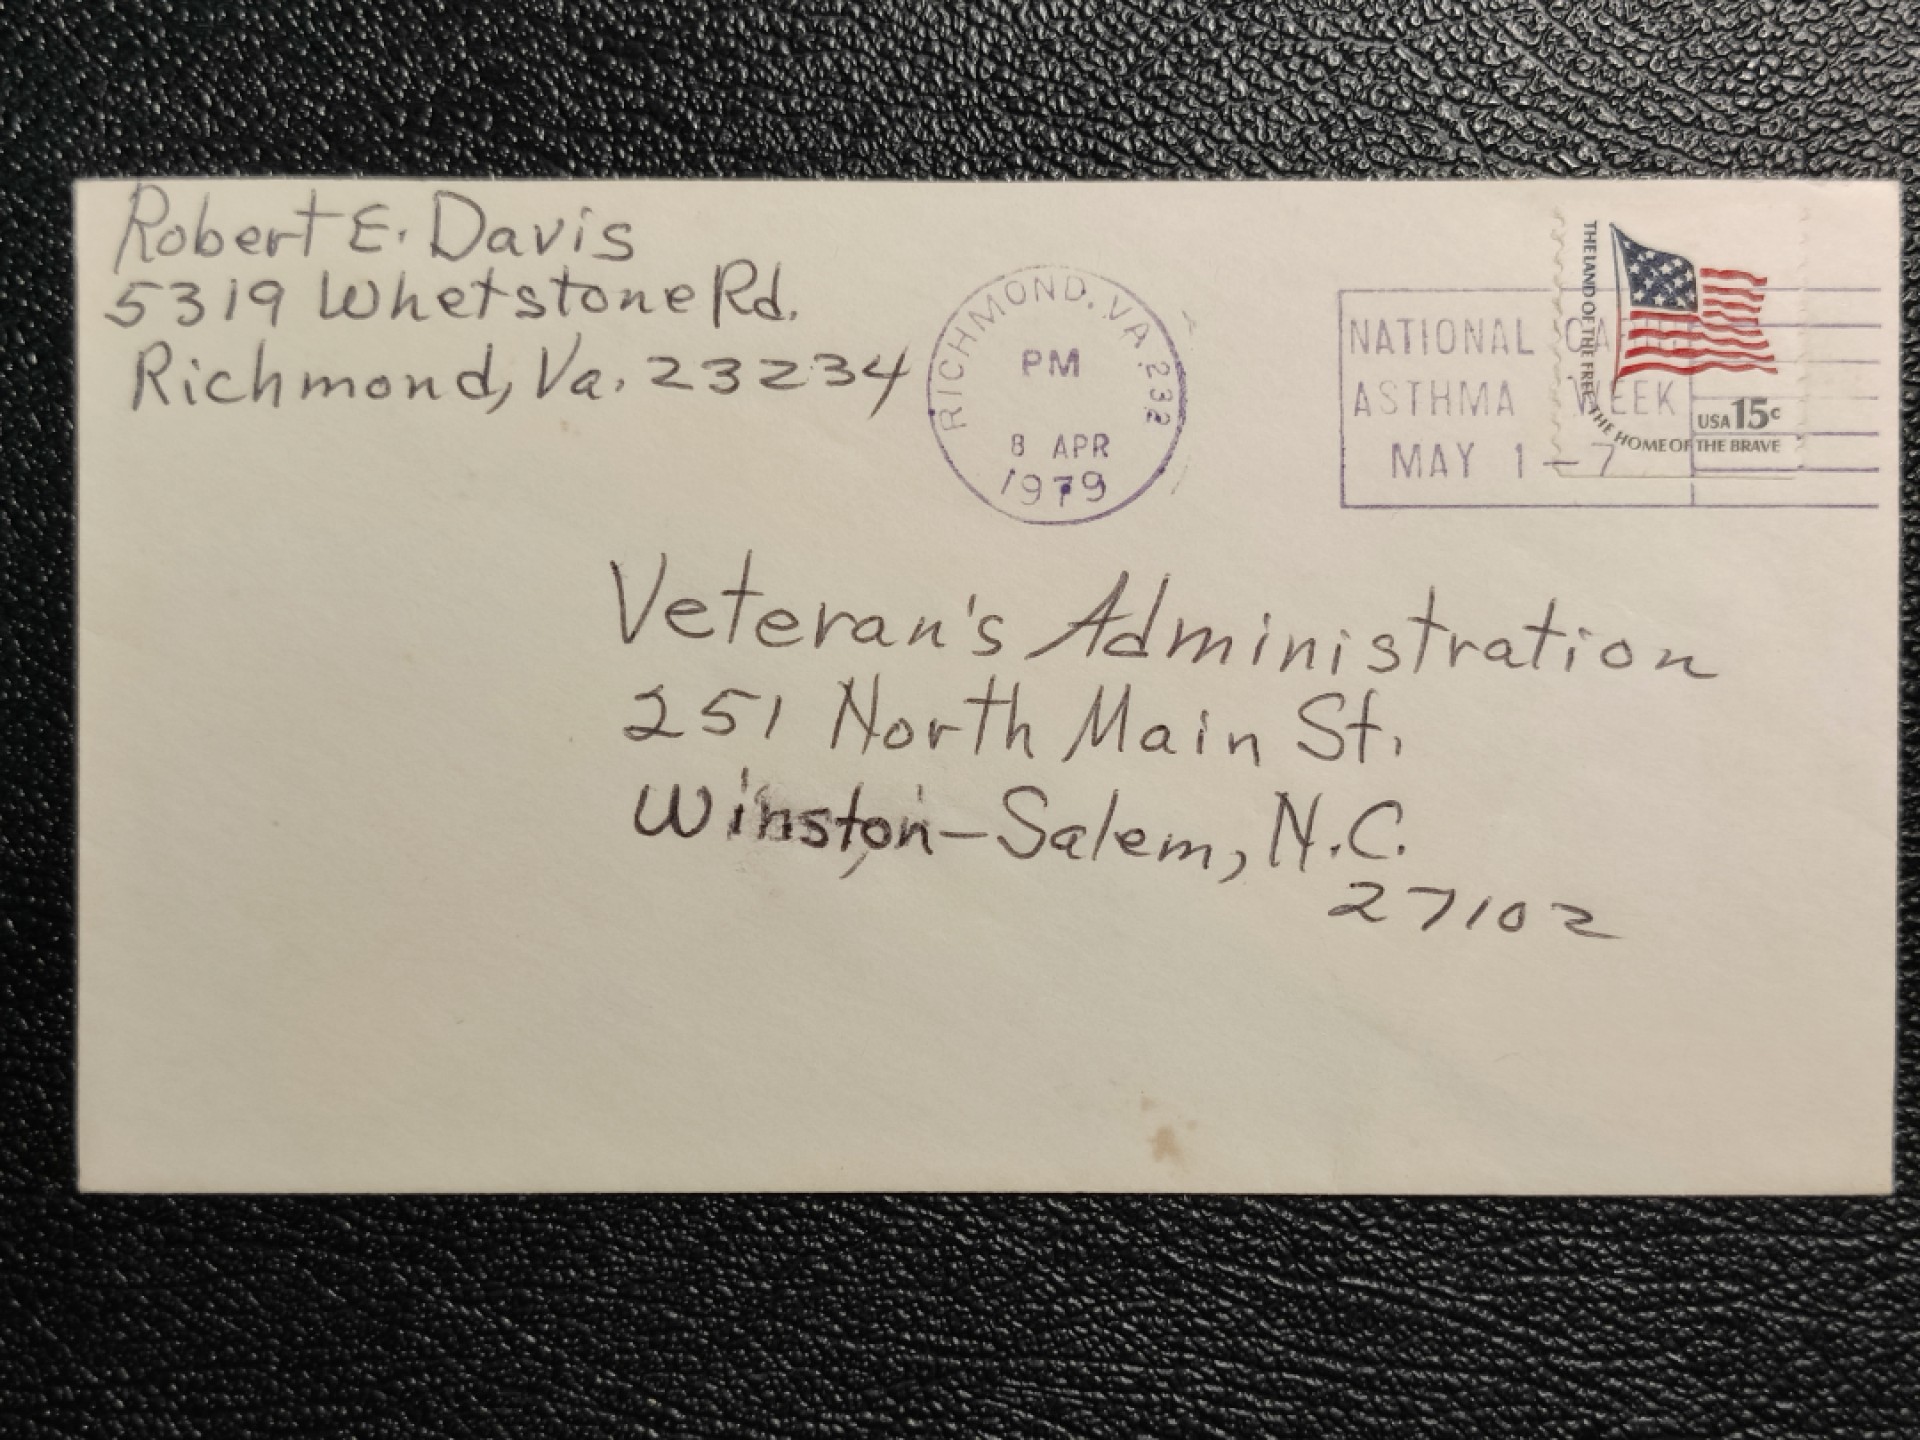 Robert E. Davis
5319 Whetstone Rd.
Richmond, Va. 23234
RICHMOND, VA 232
PM
8 APR
1979
NATIONAL
ASTHMA WEEK
MAY 1-7
THE LAND OF THE FREE, THE HOME OF THE BRAVE
USA 15c
Veteran's Administration
251 North Main St.
Winston-Salem, N.C.
27102